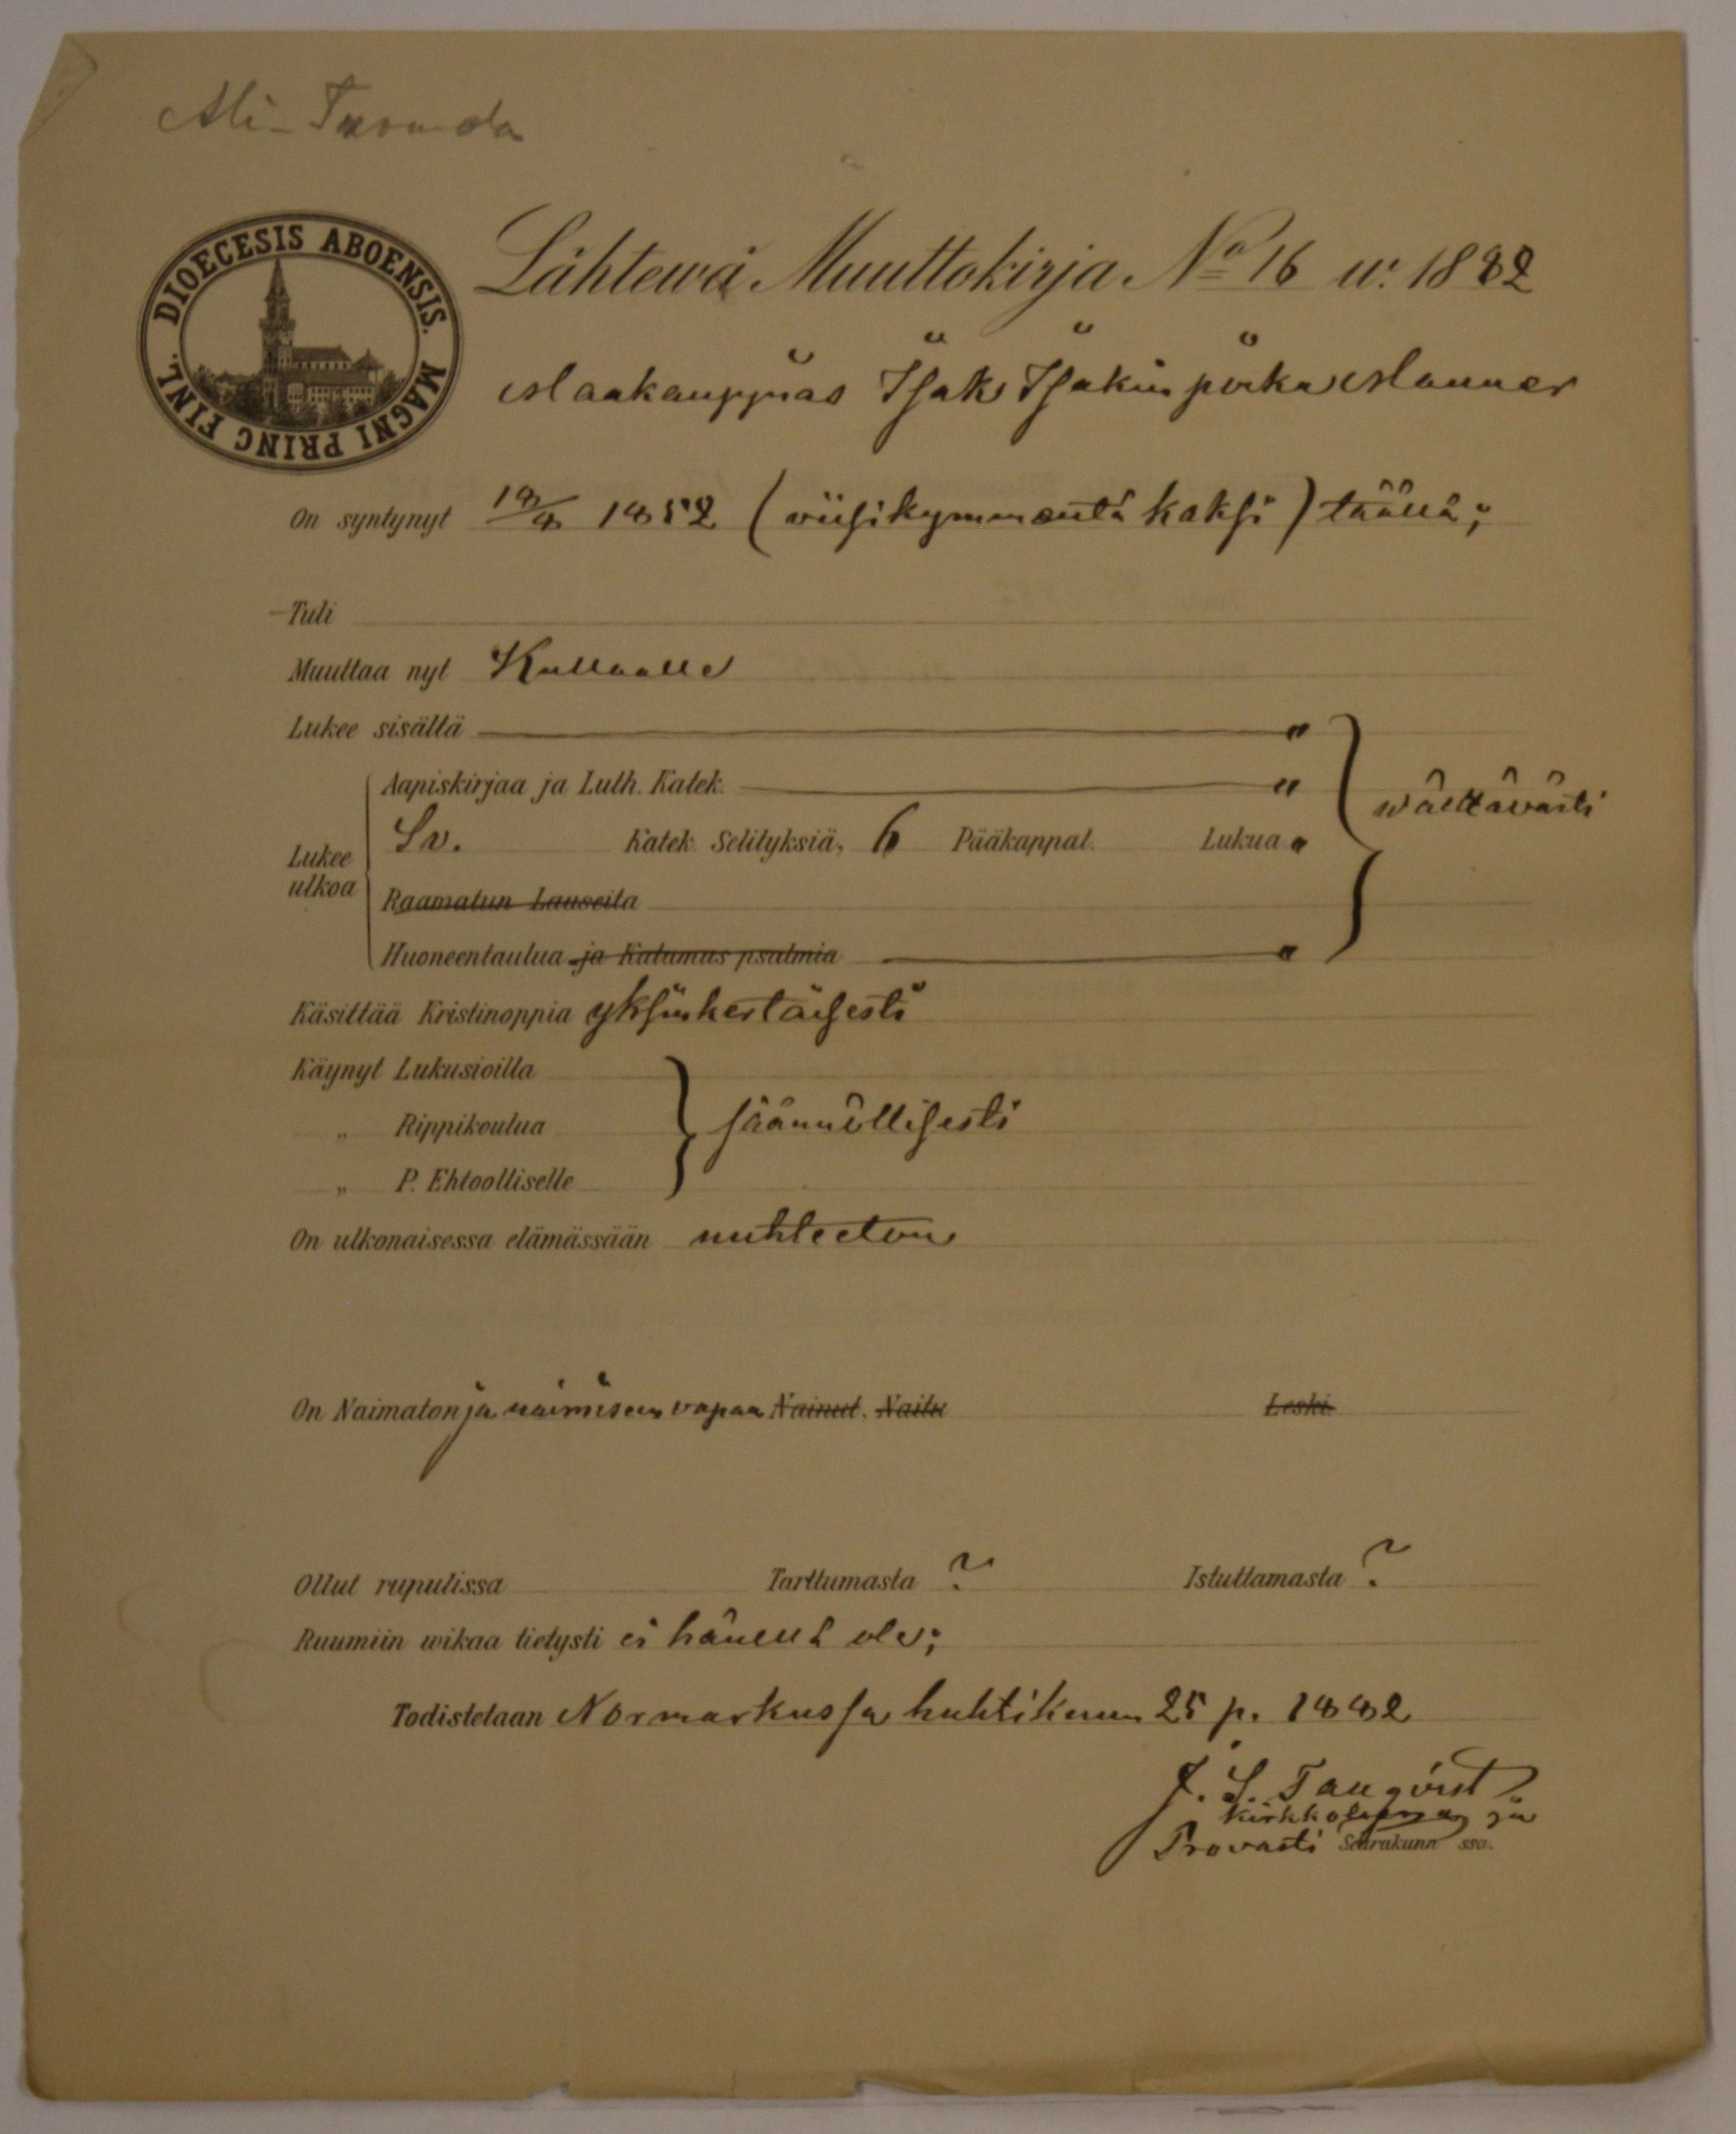 Ali-Tuomola
DIOECESIS ABOENSIS. MAGNI PRINC FINL.
Lähtewä Muuttokirja No 16 w. 1882
Maakauppias Isak Isakin poika Manner
On syntynyt 18/8 1852 (viisikymmentä kaksi) täällä;
Tuli
Muuttaa nyt Kullaalle
Lukee sisältä "
Aapiskirjaa ja Luth. Katek. "
wälttävästi
Sv. Katek. Selityksiä, 6 Pääkappal. Lukua "
Lukee ulkoa
Raamatun Lauseita
Huoneentaulua ja Katumus psalmia "
Käsittää Kristinoppia yksinkertaisesti
Käynyt Lukusioilla
„ Rippikoulua säännöllisesti
„ P. Ehtoolliselle
On ulkonaisessa elämässään nuhteeton
On Naimaton ja naimiseen vapaa Nainut. Naitu Leski.
Ollut rupulissa Tarttumasta ? Istuttamasta ?
Ruumiin wikaa tietysti ei hänellä ole;
Todistetaan Normarkussa huhtikuun 25 p. 1882
J. S. Tanqvist
Kirkkoherra ja
Provasti Seurakunn ssa.